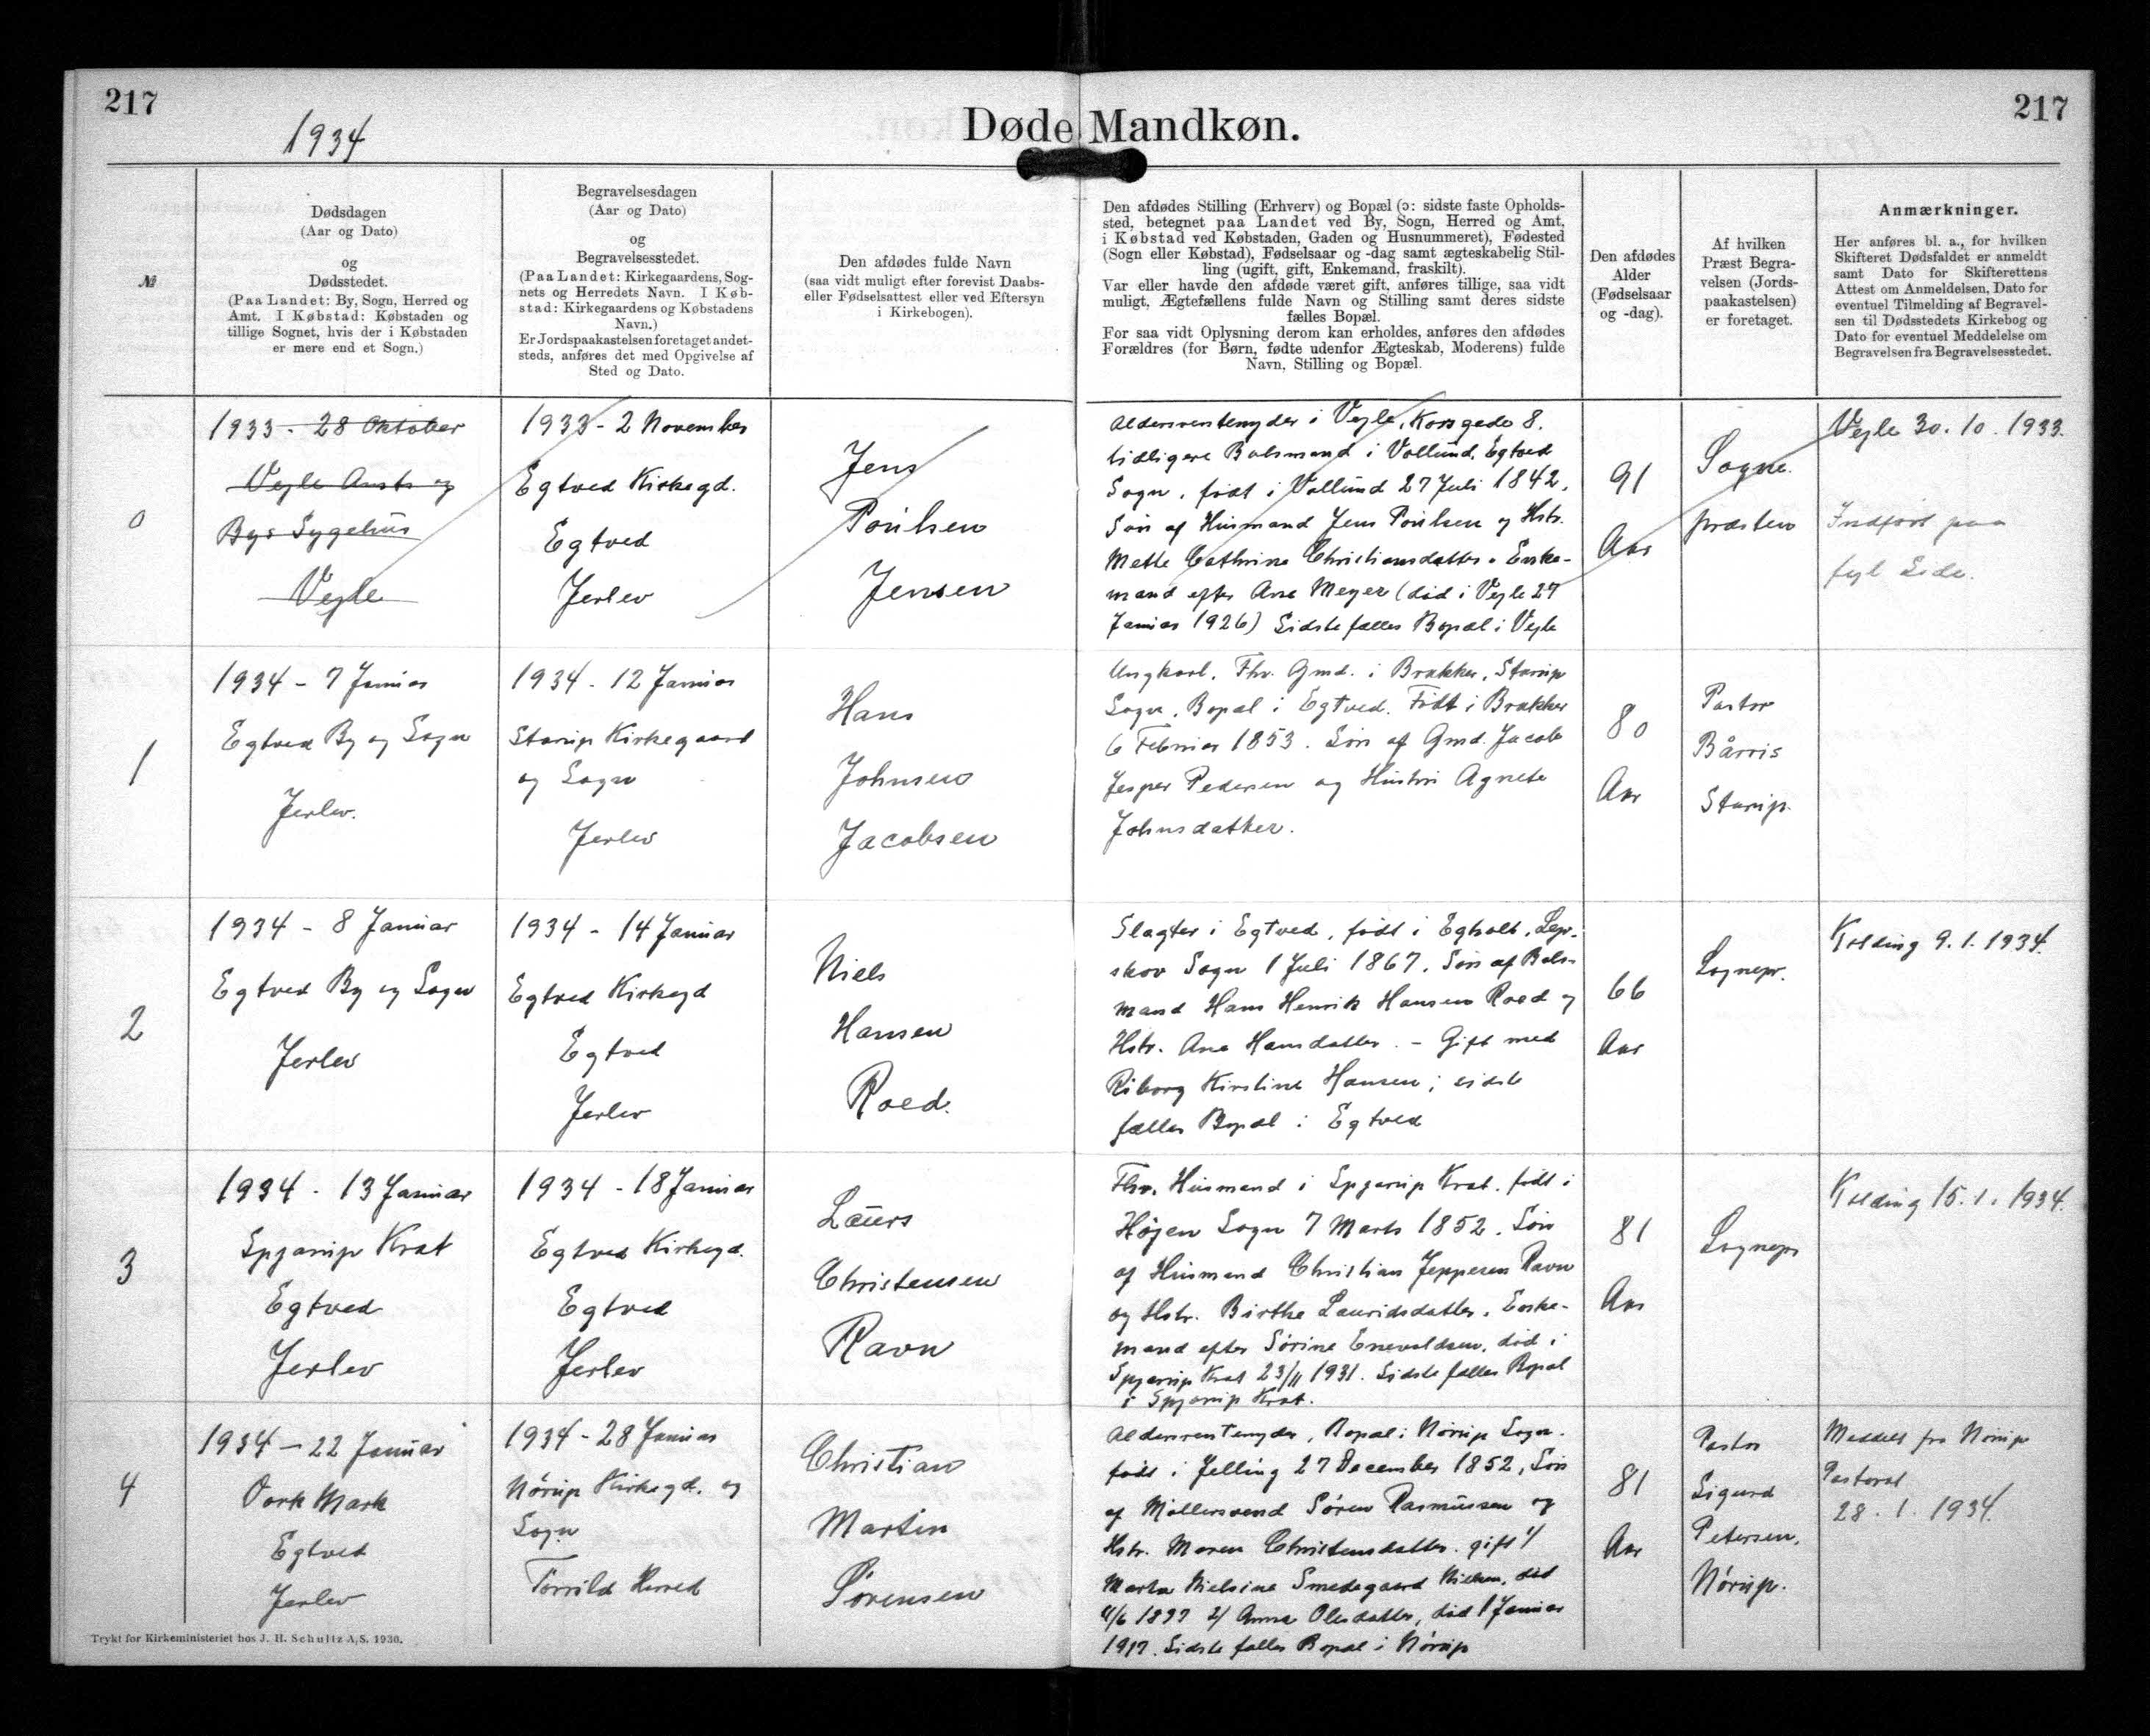 217
217
1934
Døde Mandkøn.
№
Dødsdagen
(Aar og Dato)
og
Dødsstedet.
(Paa Landet: By, Sogn, Herred og
Amt. I Købstad: Købstaden og
tillige Sognet, hvis der i Købstaden
er mere end et Sogn.)
Begravelsesdagen
(Aar og Dato)
og
Begravelsesstedet.
(Paa Landet: Kirkegaardens, Sog-
nets og Herredets Navn. I Køb-
stad: Kirkegaardens og Købstadens
Navn.)
Er Jordspaakastelsen foretaget andet-
steds, anføres det med Opgivelse af
Sted og Dato.
Den afdødes fulde Navn
(saa vidt muligt efter forevist Daabs-
eller Fødselsattest eller ved Eftersyn
i Kirkebogen).
Den afdødes Stilling (Erhverv) og Bopæl (ɔ: sidste faste Opholds-
sted, betegnet paa Landet ved By, Sogn, Herred og Amt,
i Købstad ved Købstaden, Gaden og Husnummeret), Fødested
(Sogn eller Købstad), Fødselsaar og -dag samt ægteskabelig Stil-
ling (ugift, gift, Enkemand, fraskilt).
Var eller havde den afdøde været gift, anføres tillige, saa vidt
muligt, Ægtefællens fulde Navn og Stilling samt deres sidste
fælles Bopæl.
For saa vidt Oplysning derom kan erholdes, anføres den afdødes
Forældres (for Børn, fødte udenfor Ægteskab, Moderens) fulde
Navn, Stilling og Bopæl.
Den afdødes
Alder
(Fødselsaar
og -dag).
Af hvilken
Præst Begra-
velsen (Jords-
paakastelsen)
er foretaget.
Anmærkninger.
Her anføres bl. a., for hvilken
Skifteret Dødsfaldet er anmeldt
samt Dato for Skifterettens
Attest om Anmeldelsen, Dato for
eventuel Tilmelding af Begravel-
sen til Dødsstedets Kirkebog og
Dato for eventuel Meddelelse om
Begravelsen fra Begravelsesstedet.
0
1933 - 28 Oktober
Vejle Amts og
Bys Sygehus
Vejle
1933 - 2 November
Egtved Kirkegd.
Egtved
Jerlev
Jens
Poulsen
Jensen
Aldersrentenyder i Vejle, Korsgade 8.
tidligere Bolsmand i Vollund, Egtved
Sogn, født i Vollund 27 Juli 1842,
Søn af Husmand Jens Poulsen og Hstr.
Mette Cathrine Christiansdatter. Enke-
mand efter Ane Meyer (død i Vejle 27
Januar 1926) Sidste fælles Bopæl i Vejle
91
Aar
Sogne-
præsten
Vejle 30.10.1933.
Indført paa
fejl Side.
1
1934 - 7 Januar
Egtved By og Sogn
Jerlev.
1934 - 12 Januar
Starup Kirkegaard
og Sogn
Jerlev
Hans
Johnsen
Jacobsen
Ungkarl. Fhv. Gmd. i Brakker, Starup
Sogn. Bopæl i Egtved. Født i Brakker
6 Februar 1853. Søn af Gmd. Jacob
Jesper Pedersen og Hustru Agnete
Johnsdatter.
80
Aar
Pastor
Starup.
2
1934 - 8 Januar
Egtved By og Sogn
Jerlev
1934 - 14 Januar
Egtved Kirkegd
Egtved
Jerlev
Niels
Hansen
Roed.
Slagter i Egtved, født i Egholt, Lejr-
skov Sogn 1 Juli 1867. Søn af Bols-
mand Hans Henrik Hansen Roed og
Hstr. Ane Hansdatter. - Gift med
Kirstine Hansen; sidste
fælles Bopæl i Egtved
66
Aar
Sognepr.
Kolding 9.1.1934.
3
1934 - 13 Januar
Spjarup Krat
Egtved
Jerlev
1934 - 18 Januar
Egtved Kirkegd.
Egtved
Jerlev
Laurs
Christensen
Ravn
Fhv. Husmand i Spjarup Krat, født i
Højen Sogn 7 Marts 1852. Søn
af Husmand Christian Jeppesen Ravn
og Hstr. Birthe Lauridsdatter. Enke-
mand efter Sørine Enevoldsen, død i
Spjarup Krat 23/11 1931. Sidste fælles Bopæl
i Spjarup Krat.
81
Aar
Sognepr
Kolding 15.1.1934.
4
1934 - 22 Januar
Oork Mark
Egtved
Jerlev
1934 - 28 Januar
Nørup Kirkegd. og
Sogn
Tørrild Herred
Christian
Martin
Sørensen
Aldersrentenyder, Bopæl: Nørup Sogn.
født i Jelling 27 December 1852, Søn
af Møllersvend Søren Rasmussen og
Hstr. Maren Christensdatter. gift 1/
Nielsine Smedegaard Nielsen, død
2/ Anna Olesdatter, død 1 Januar
1917. Sidste fælles Bopæl i Nørup
81
Aar
Pastor
Sigurd
Petersen,
Nørup.
Meddelt fra Nørup
Pastorat
28.1.1934.
Trykt for Kirkeministeriet hos J. H. Schultz A/S. 1930.